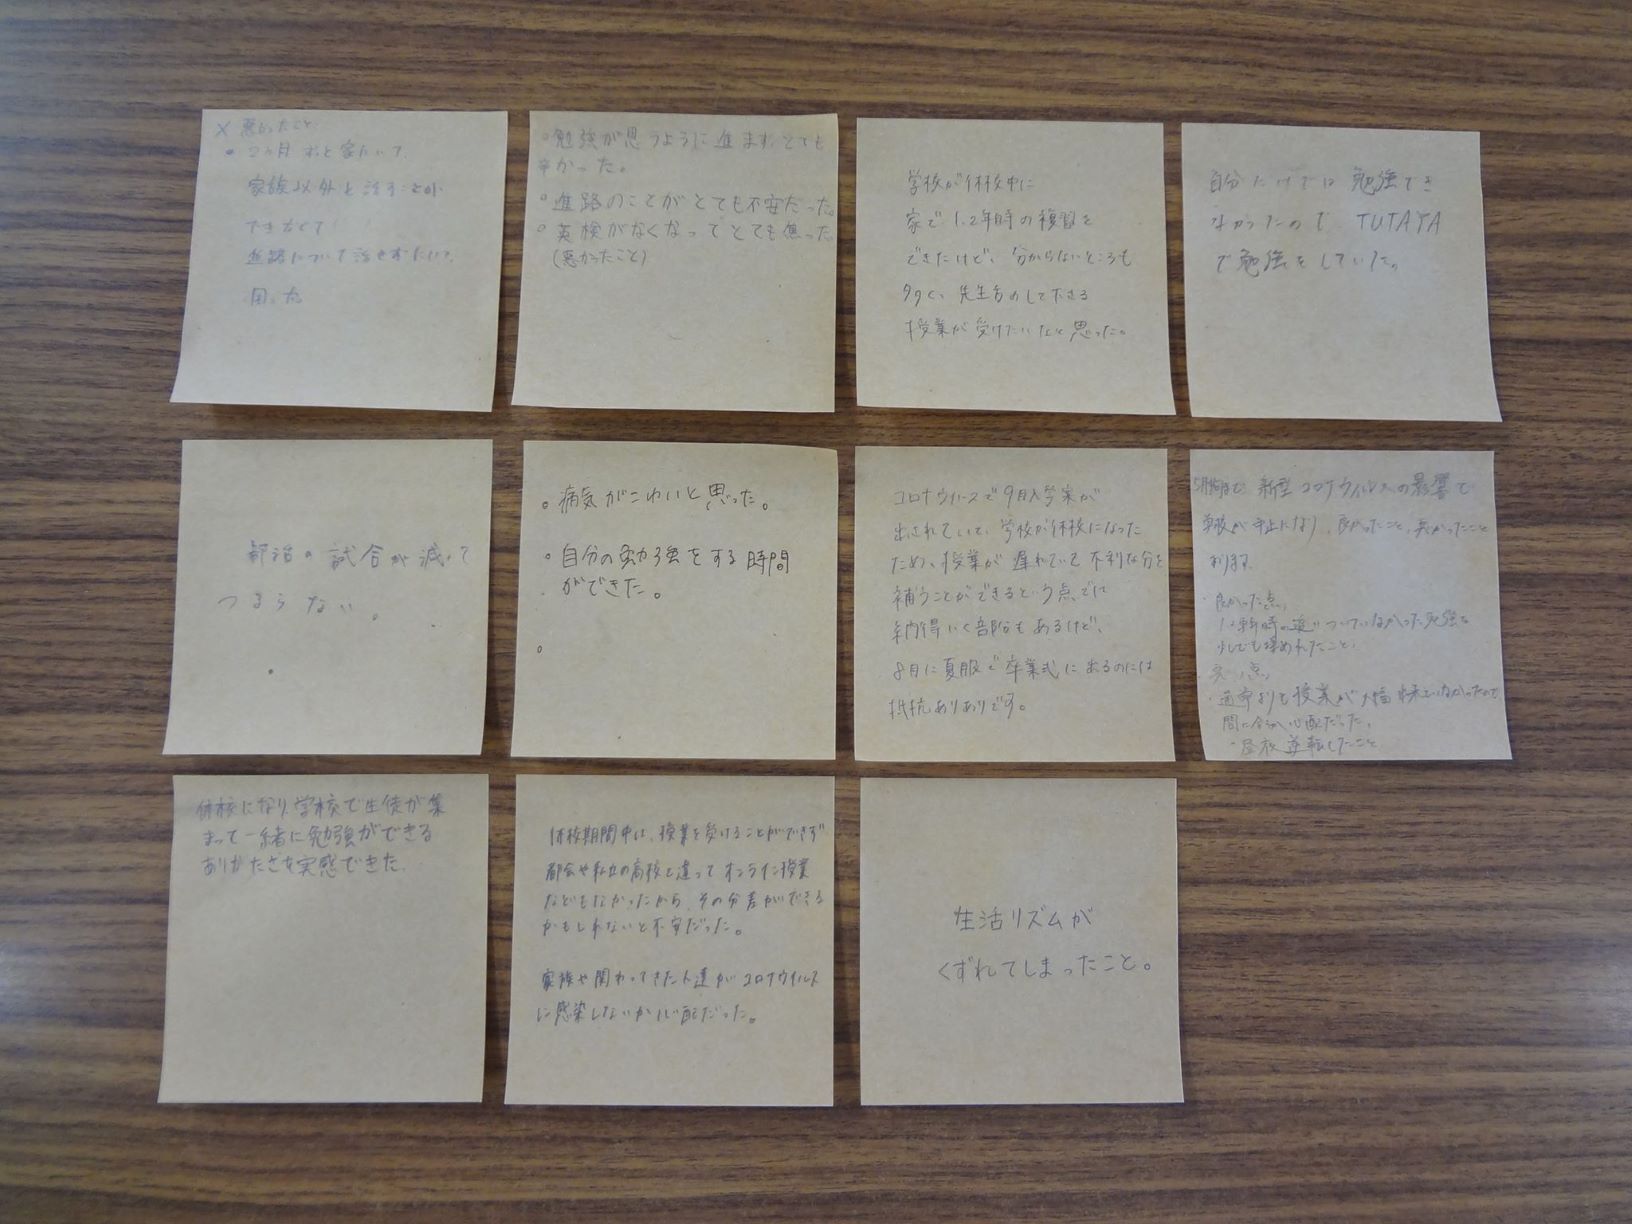 × 悪かったこと
• 2ヵ月ずっと家にいて、
家族以外と話すことが
できなくて
進路について話せずにいて、
困った
◦ 勉強が思うように進まずとても
辛かった。
◦ 進路のことがとても不安だった。
◦ 英検がなくなってとても焦った
(悪かったこと)
学校が休校中に
家で1.2年時の複習を
できたけど、分からないところも
多く、先生方のして下さる
授業が受けたいなと思った。
自分だけでは勉強でき
なかったので TUTAYA
で勉強をしていた。
部活の試合が減って
つまらない。
◦ 病気がこわいと思った。
◦ 自分の勉強をする時間
ができた。
コロナウイルスで9月入学案が
出されていて、学校が休校になった
ため、授業が遅れていて不利な分を
補うことができるという点では
納得いく部分もあるけど、
8月に夏服で卒業式に出るのには
抵抗ありありです。
新型コロナウイルスの影響で
学校が中止になり、良かったこと、
あります。
・良かった点、
1.2年時の追いついていなかった勉強を
少しでも埋めれたこと。
点、
・通常よりも授業が大幅
間に合うか心配だった。
・昼夜逆転したこと
休校になり、学校で生徒が集
まって一緒に勉強ができる
ありがたさを実感できた。
休校期間中は、授業を受けることができず
都会や私立の高校と違ってオンライン授業
などもなかったから、その分差ができる
かもしれないと不安だった。
家族や関わってきた人達がコロナウイルス
に感染しないか心配だった。
生活リズムが
くずれてしまったこと。